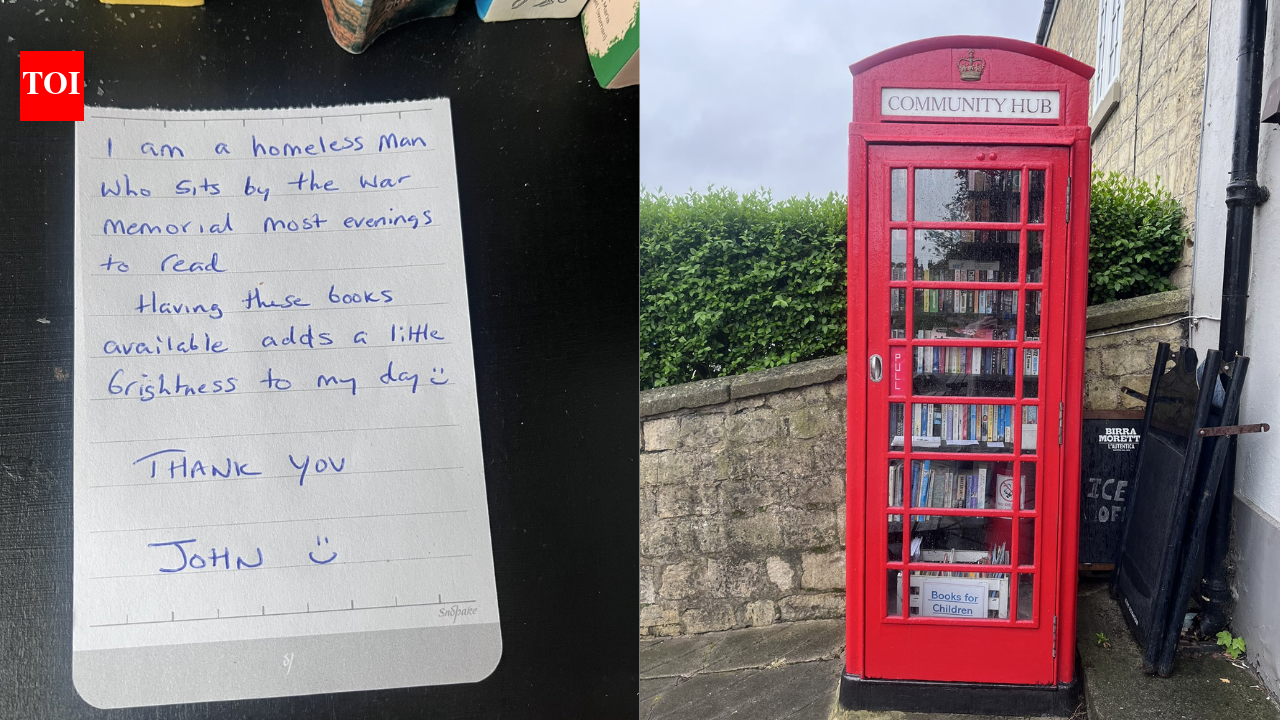 TOI
I am a homeless man
who sits by the war
memorial most evenings
to read
Having these books
available adds a little
brightness to my day
THANK YOU
JOHN
Snopake
COMMUNITY HUB
PULL
BIRRA
MORETTI
L'AUTENTICA
ICE
Books for
Children